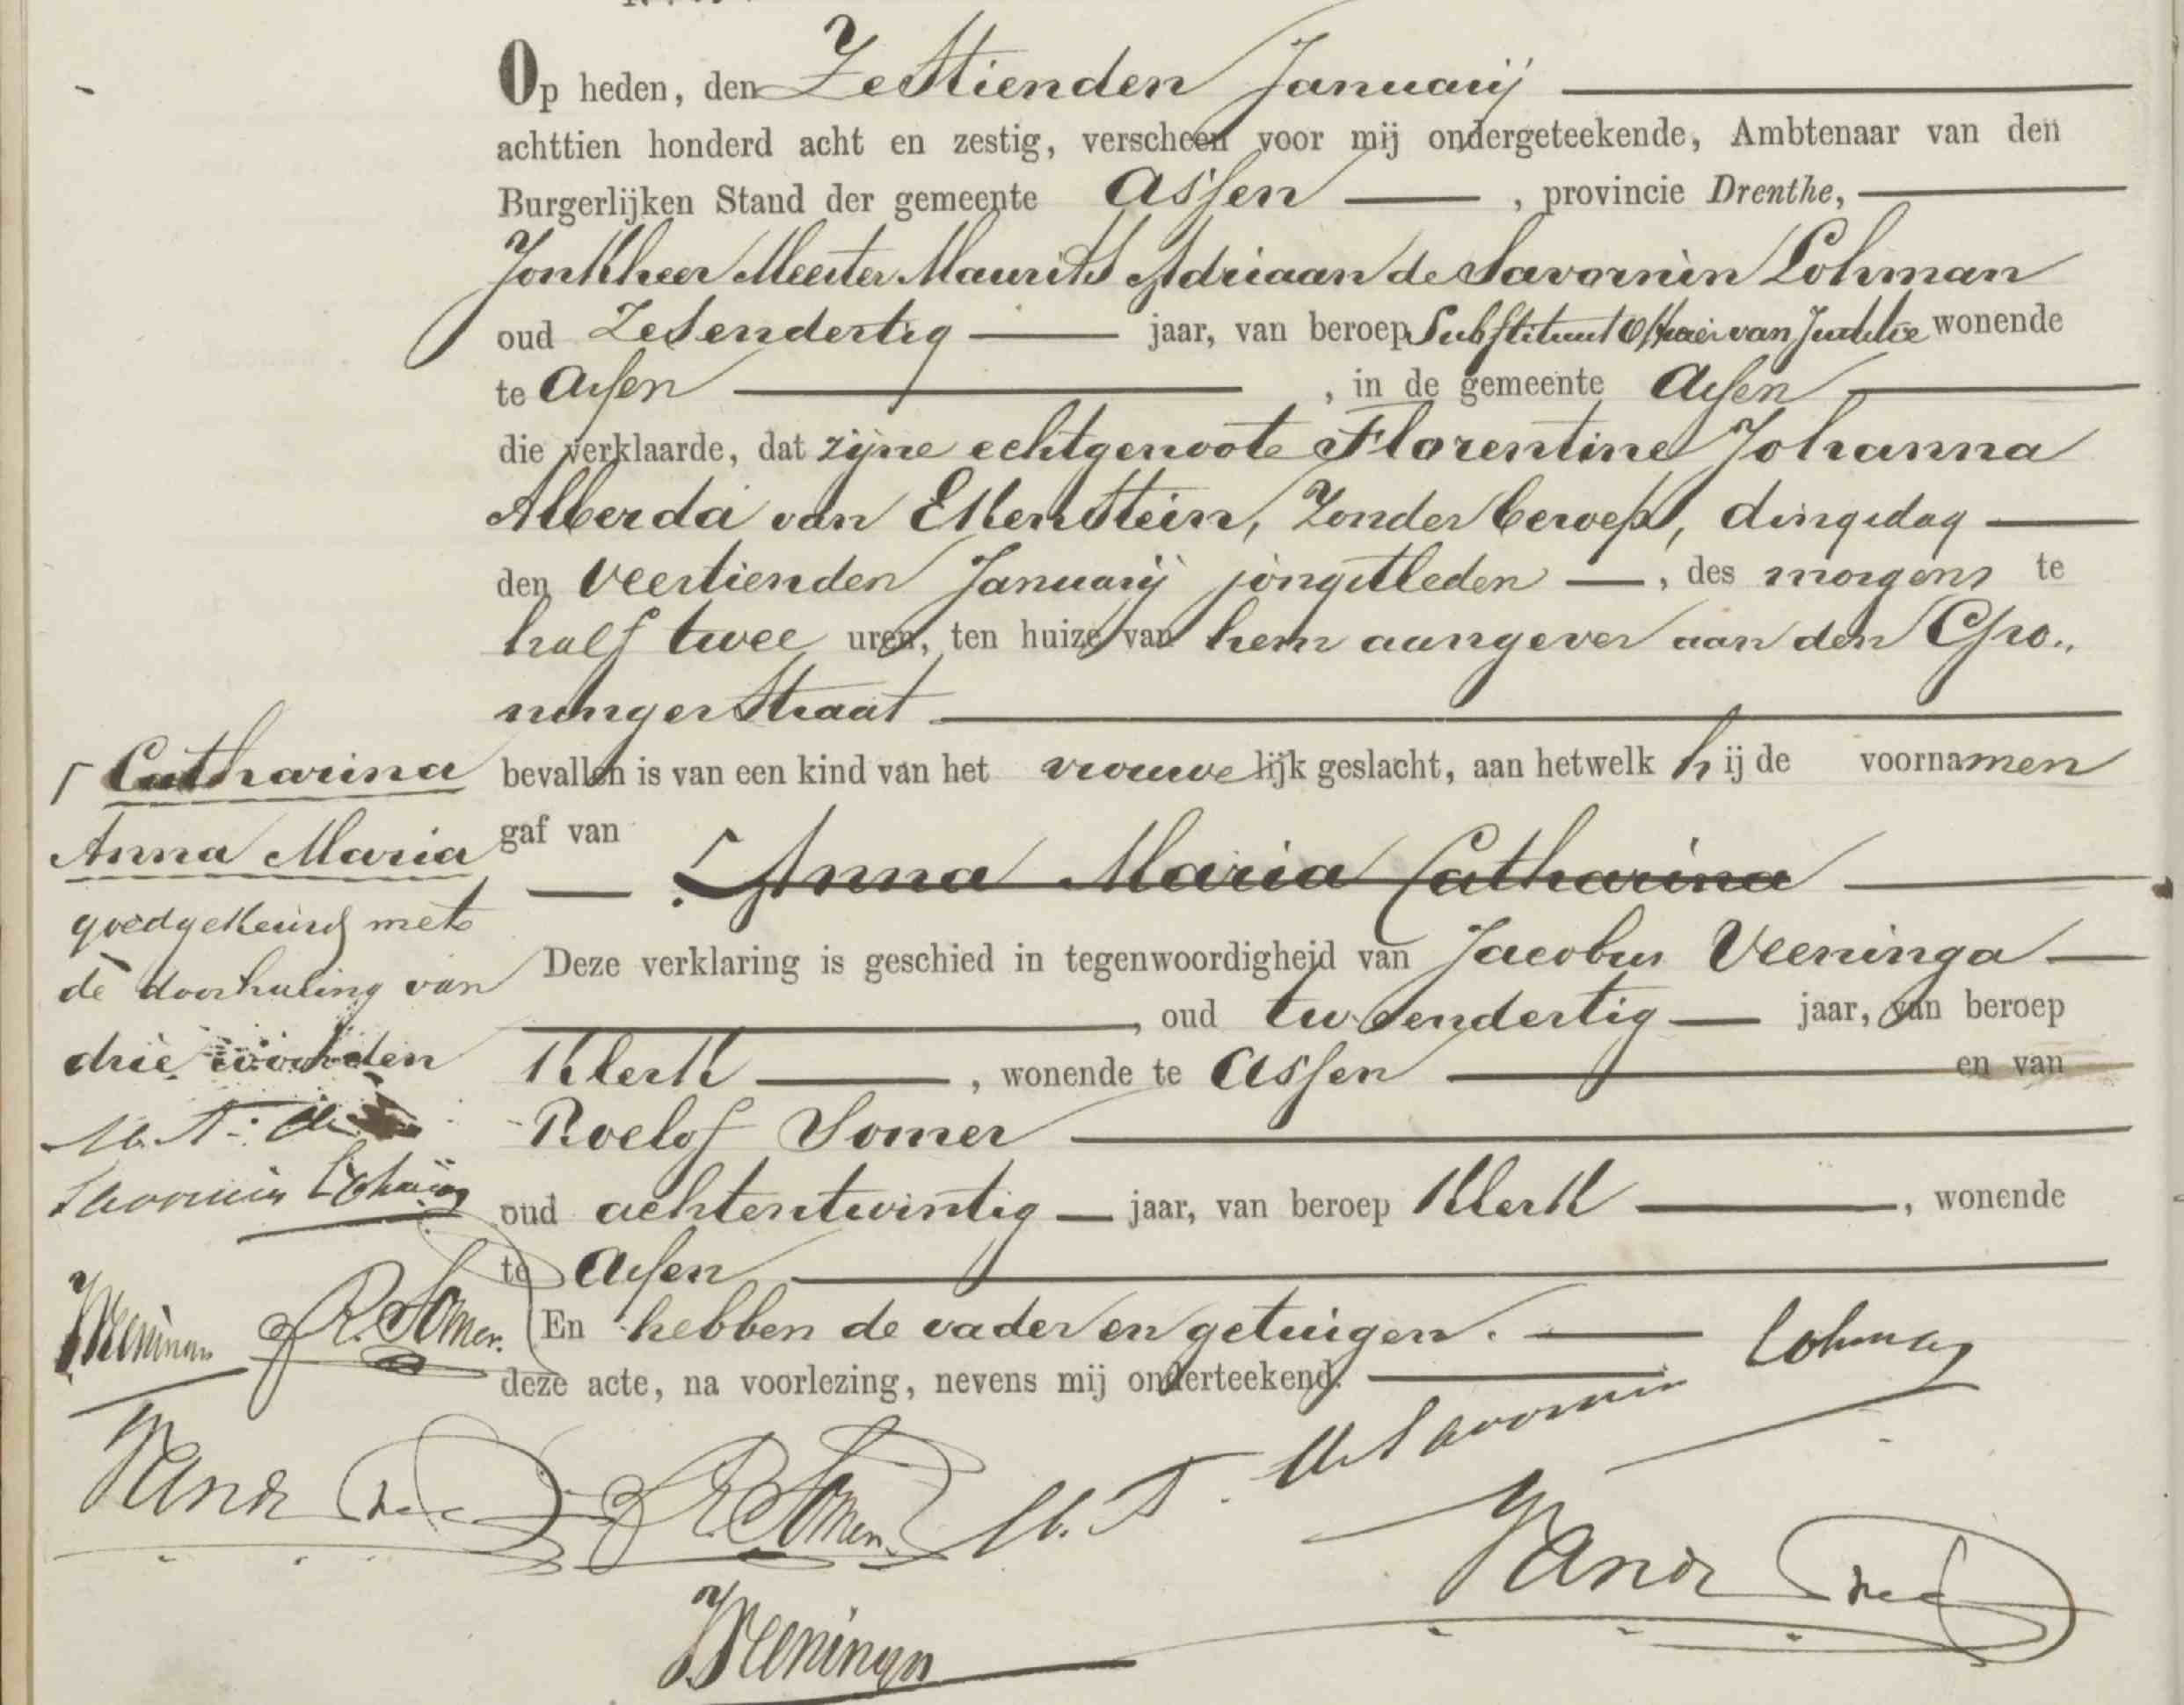 Op heden, den Zestienden Januarij
achttien honderd acht en zestig, verscheen voor mij ondergeteekende, Ambtenaar van den
Burgerlijken Stand der gemeente Assen, provincie Drenthe,
Jonkheer Meester Maurits Adriaan de Savornin Lohman
oud Zesendertig jaar, van beroep Substituut Officier van Justitie wonende
te Assen, in de gemeente Assen
die verklaarde, dat zijne echtgenoote Florentine Johanna
Alberda van Ekenstein, Zonder beroep, dingsdag
den veertienden Januarij jongstleden, des morgens te
half twee uren, ten huize van hem aangever aan den Gro„
ningerstraat
bevallen is van een kind van het vrouwelijk geslacht, aan hetwelk hij de voornamen
gaf van
Anna Maria Catharina
Deze verklaring is geschied in tegenwoordigheid van Jacobus Veeninga
, oud tweeendertig jaar, van beroep
Klerk, wonende te Assen en van
Roelof Somer
oud achtentwintig jaar, van beroep Klerk, wonende
te Assen
En hebben de vader en getuigen.
deze acte, na voorlezing, nevens mij onderteekend.
Catharina
Anna Maria
goedgekeurd met
de doorhaling van
drie woorden
M. A. de
Savornin Lohman
JVeeninga R. Somer.
R Somer M. A. de Savornin Lohman
JVeeninga